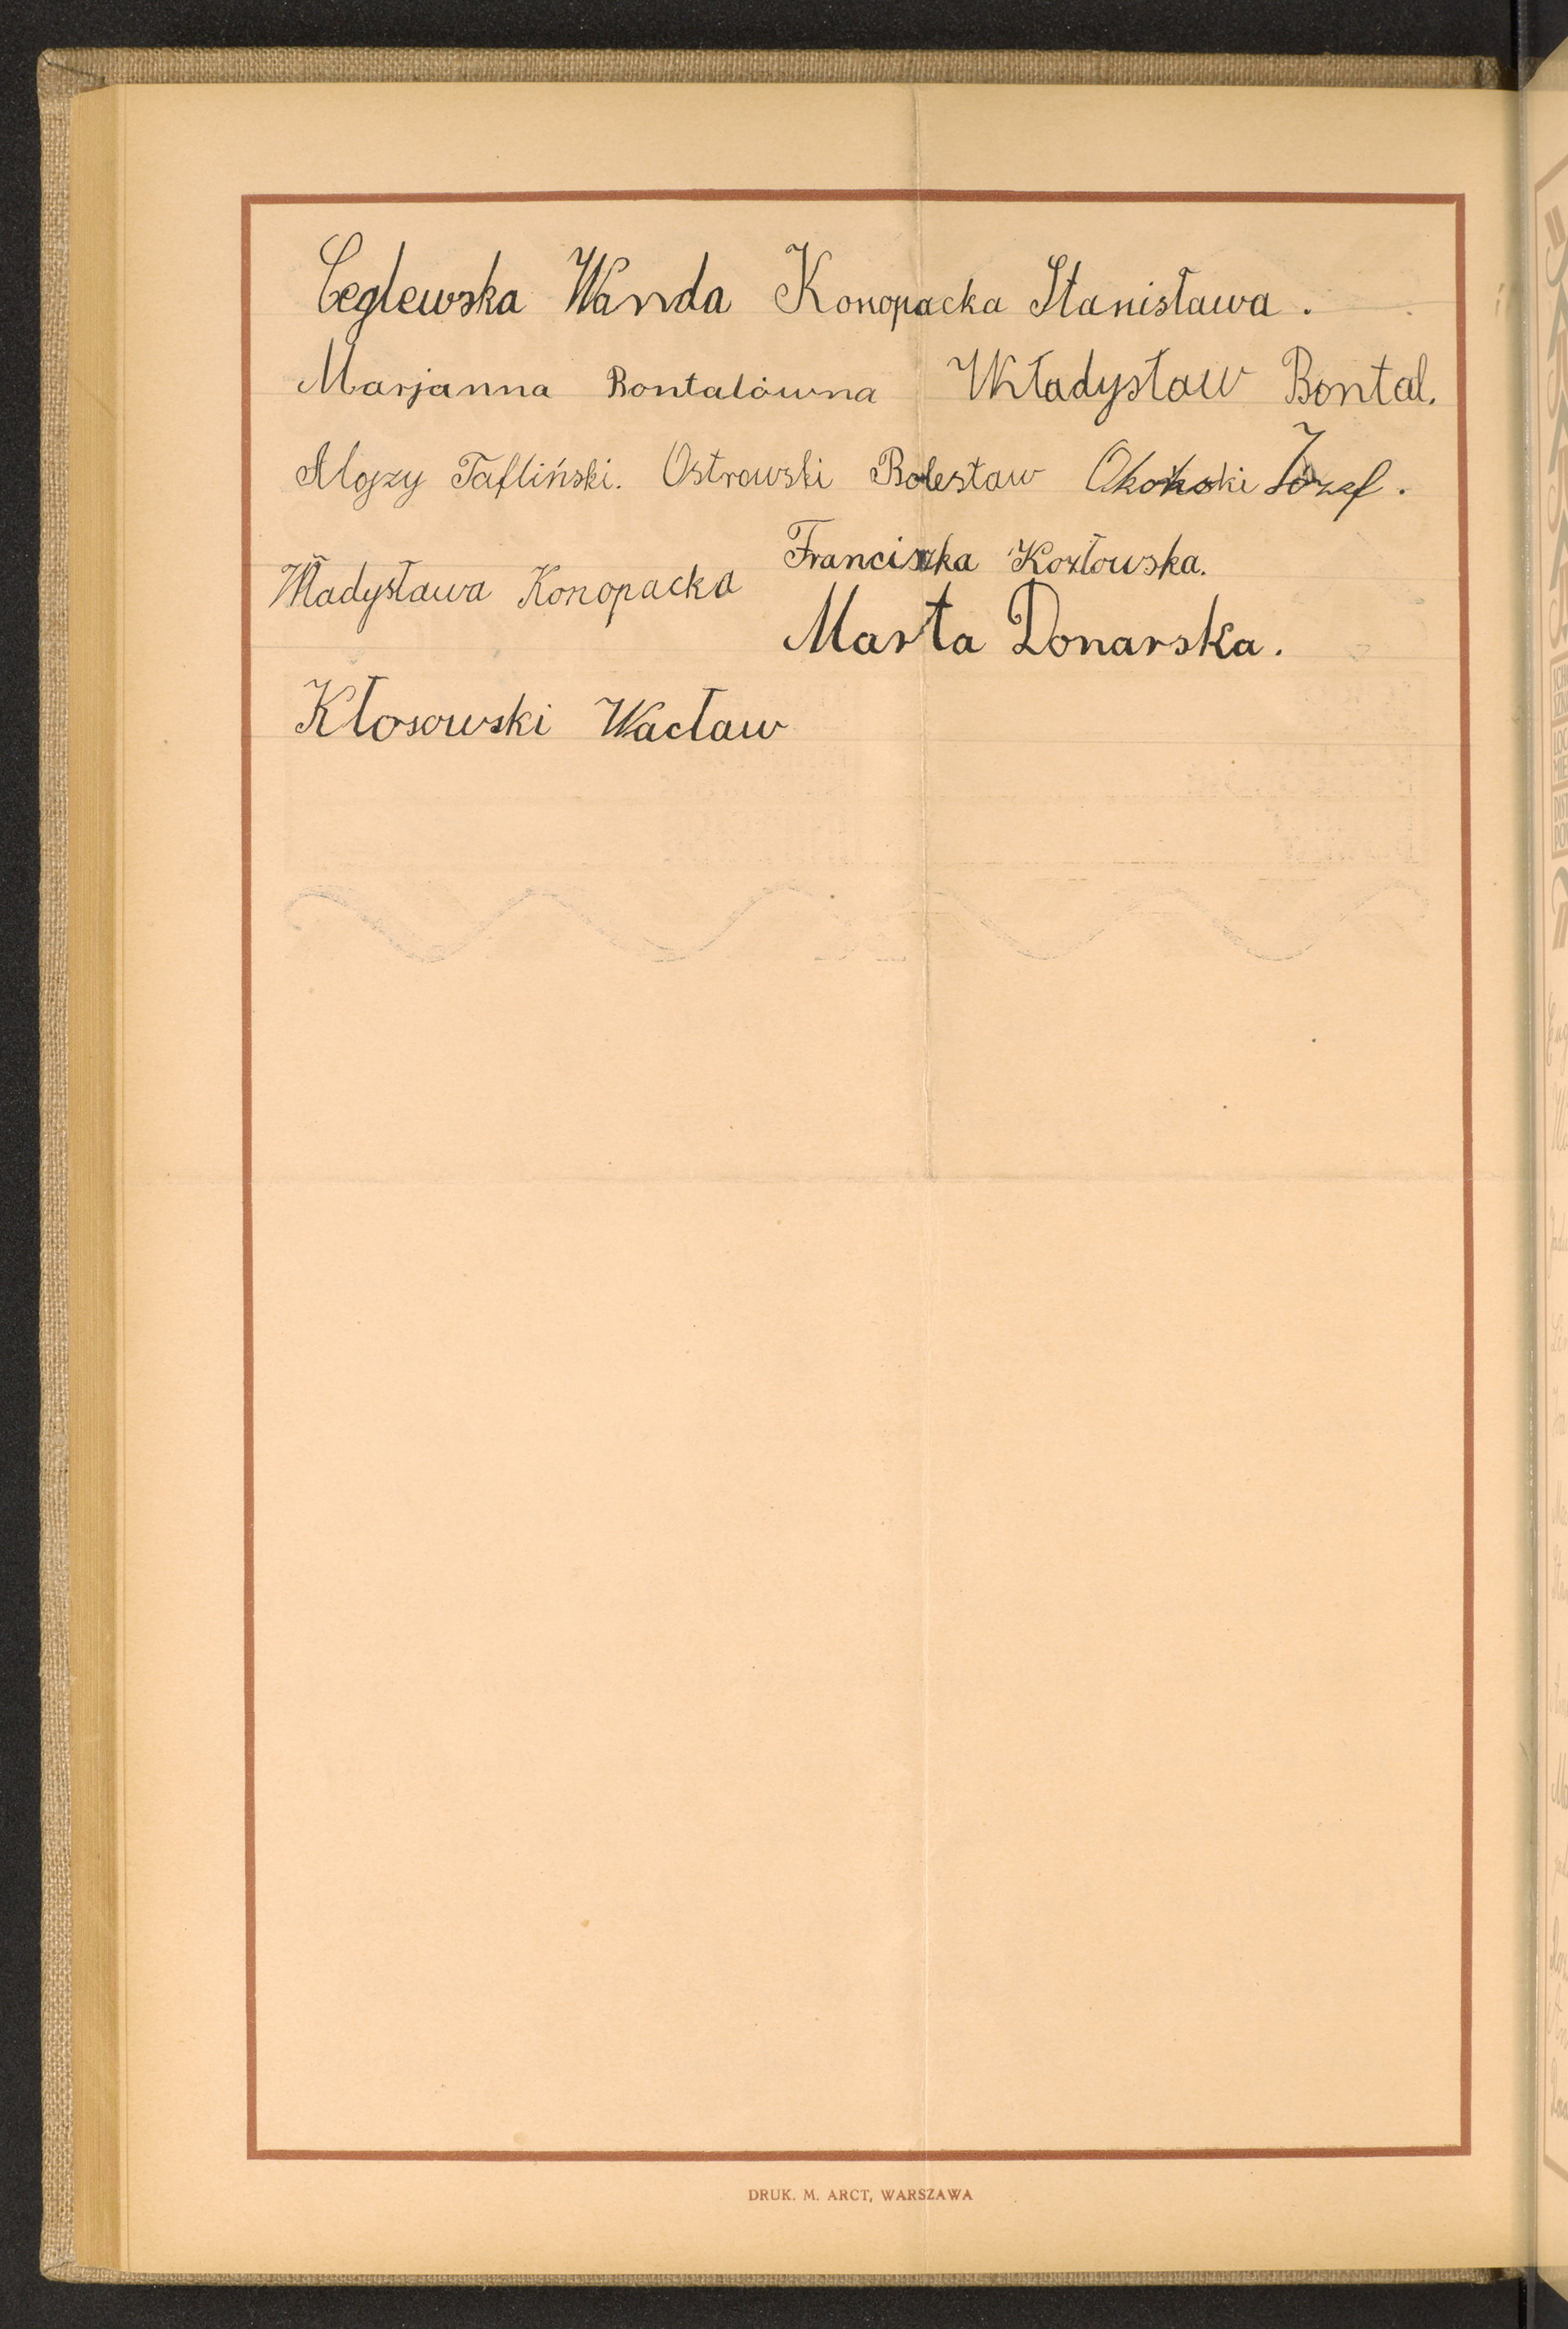 Ceglewska Wanda Konopacka Stanisława.
Marjanna Bontalówna Władysław Bontal.
Alojzy Tafliński. Ostrowski Bolesław Józef.
Franciszka Kozłowska.
Władysława Konopacka
Marta Donarska.
Kłosowski Wacław
DRUK. M. ARCT, WARSZAWA